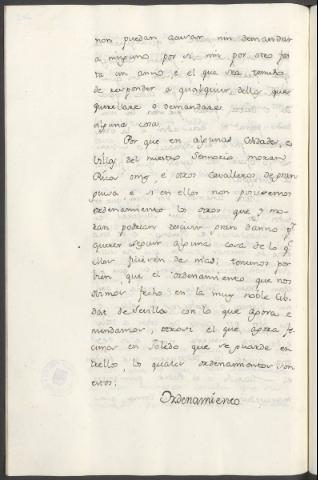 non puedan acusar nin demandar
a ninguno por si nin por otro fas
ta un anno, e el que sea tenudo
de responder a qualquier dellos que
querellare o demandare
alguna cosa.
Por que en algunas Cibdades, e
Villas del nuestro Sennorio moran
Ricos omes e otros cavalleros de gran
guisa e si en ellos non pusiesemos
ordenamiento los otros que y mo-
ran podrian rescivir gran danno por
querer seguir alguna cosa de lo que
ellos ficiesen de mas; tenemos por
bien, que el ordenamiento que nos
ovimos fecho en la muy noble Cib-
dat de Sevilla con lo que agora e-
mendamos, otrosi el que agora fe-
cimos en Toledo que se guarde en
ello, los quales ordenamientos son
estos:
Ordenamiento